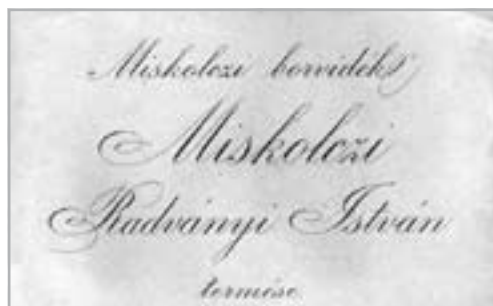 Miskolczi borvidék
Miskolczi
Radványi István
termése.